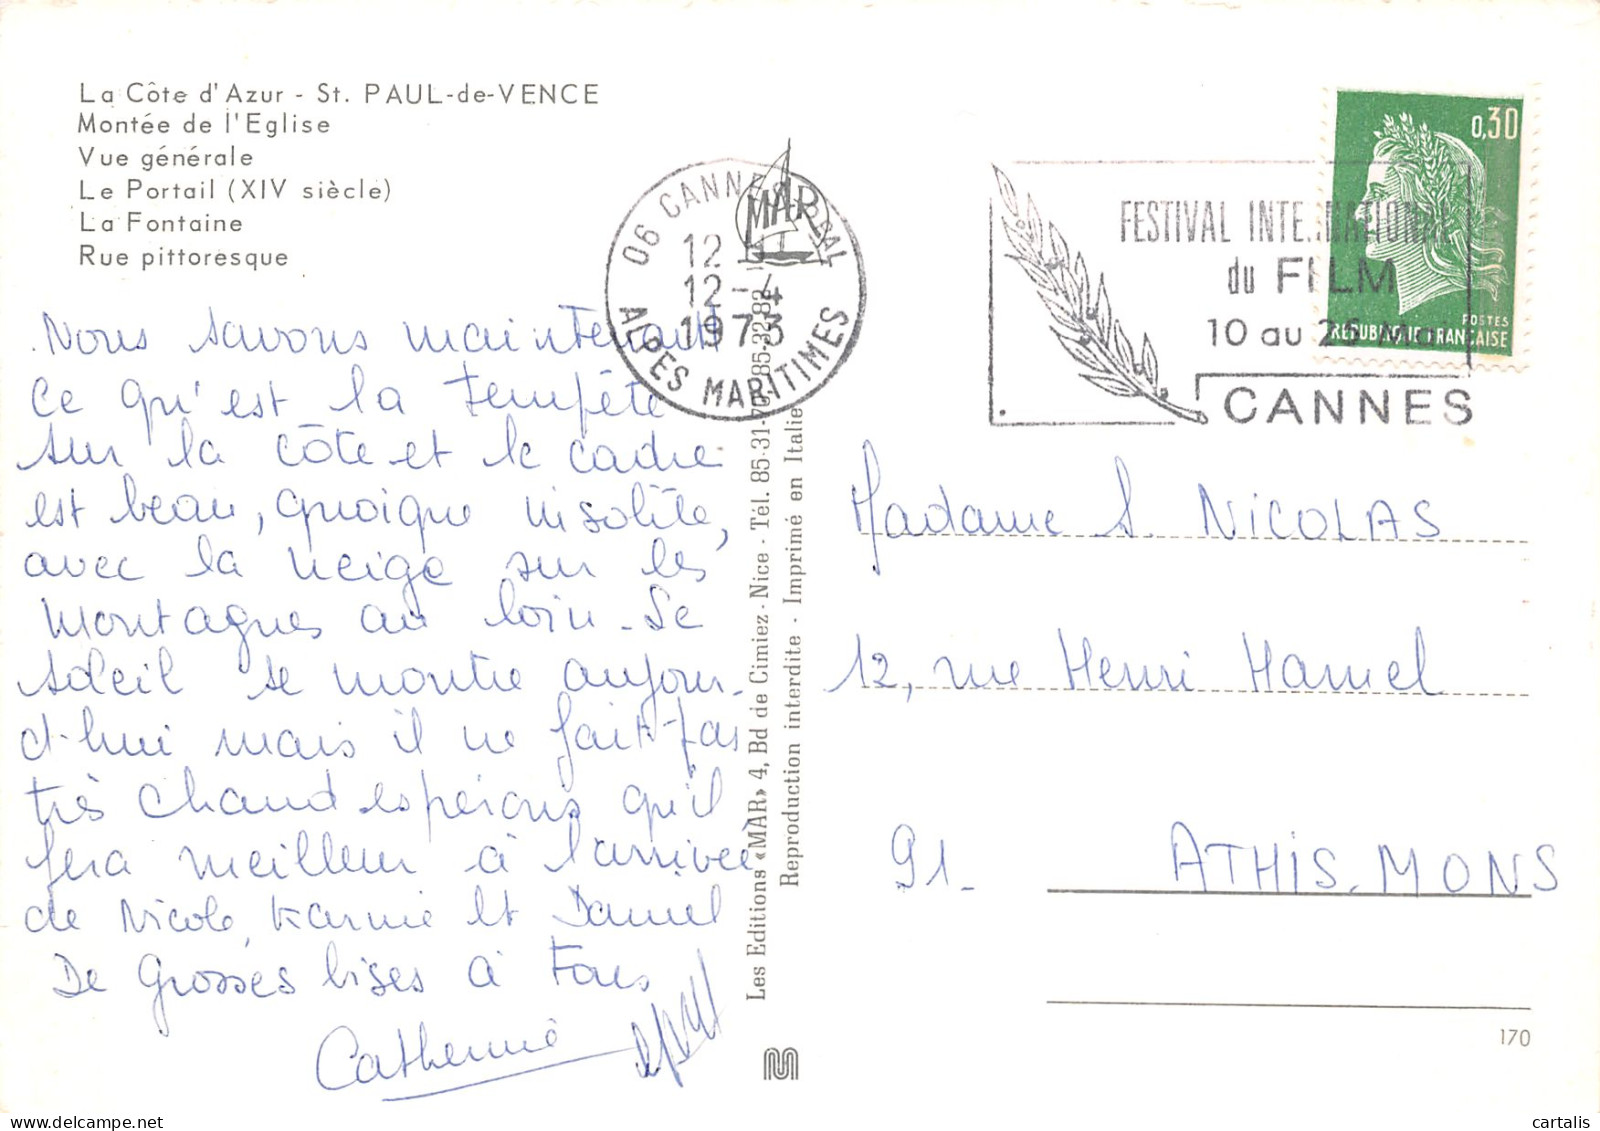 La Côte d'Azur - St. PAUL-de-VENCE
Montée de l'Eglise
Vue générale
Le Portail (XIV siècle)
La Fontaine
Rue pittoresque
Nous savons maintenant
ce qu'est la tempête
sur la côte et le cadre
est beau, quoique insolite,
avec la neige sur les
montagnes au loin - Le
soleil se montre aujour-
d'hui mais il ne fait pas
très chaud espérons qu'il
fera meilleur à l'arrivée
de Nicole, Karine et Daniel
De Grosses bises à tous
Catherine
MAR
06 CANNES PPAL
12 H
12-4
1973
ALPES MARITIMES
Les Editions «MAR» 4, Bd de Cimiez - Nice - Tél. 85-31-70 85-32-82
Reproduction interdite - Imprimé en Italie
FESTIVAL INTERNATIONAL
du FILM
10 au 25 Mai
CANNES
0,30
POSTES
REPUBLIQUE FRANÇAISE
Madame S. NICOLAS
12, rue Henri Hamel
91- ATHIS-MONS
170
cartalis
delcampe.net